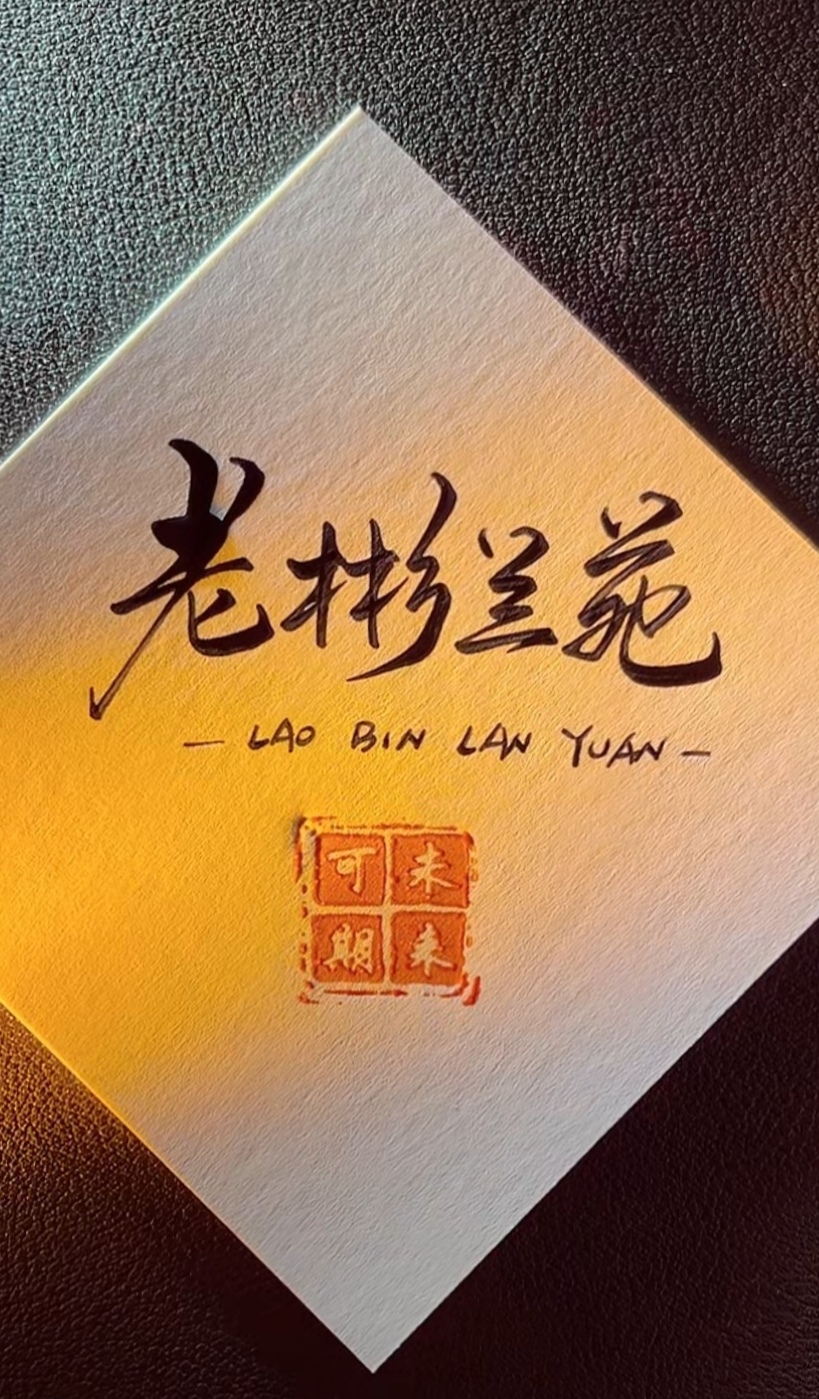 老彬兰苑
— LAO BIN LAN YUAN —
未来
可期